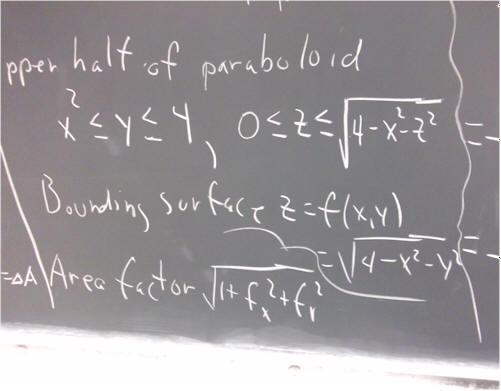 pper half of paraboloid
x² ≤ y ≤ 4, 0 ≤ z ≤ √(4-x²-z²) =
Bounding surface z = f(x,y)
= √(4-x²-y²) =
=ΔA Area factor √(1+f_x²+f_y²)